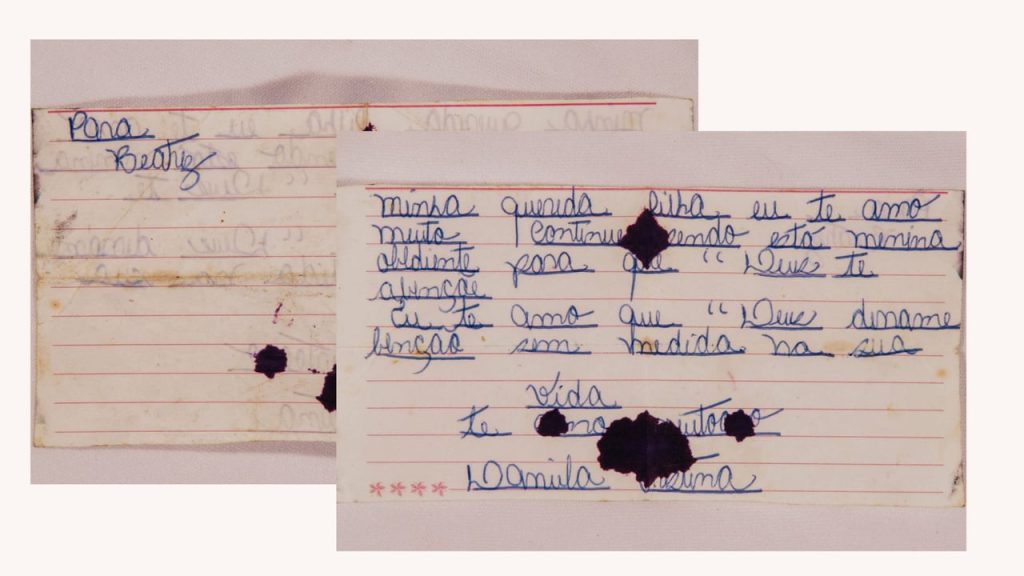 Para
Beatriz
minha querida filha eu te amo
muito continue sendo está menina
obidiente para que " Deus te
abinçõe
Eu te amo que " Deus derrame
benção sem medida na sua
vida
te amo
Damila